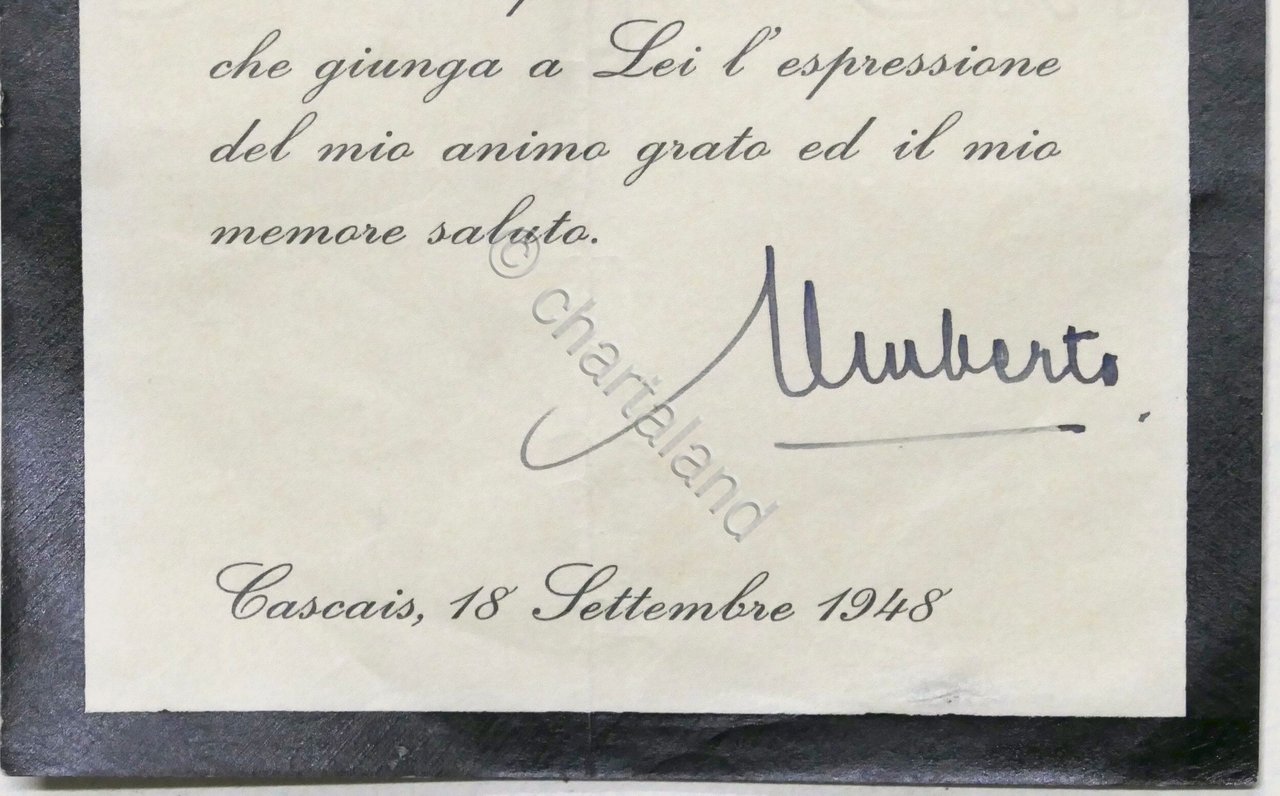 che giunga a Lei l'espressione
del mio animo grato ed il mio
memore saluto.
© chartaland
Umberto
Cascais, 18 Settembre 1948